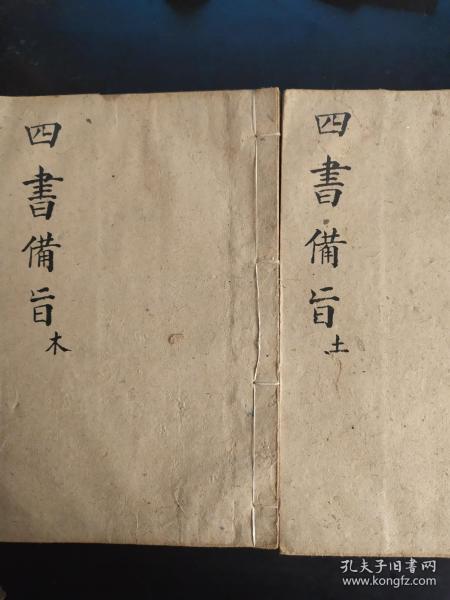 四書備旨木
四書備旨土
孔夫子旧书网
www.kongfz.com